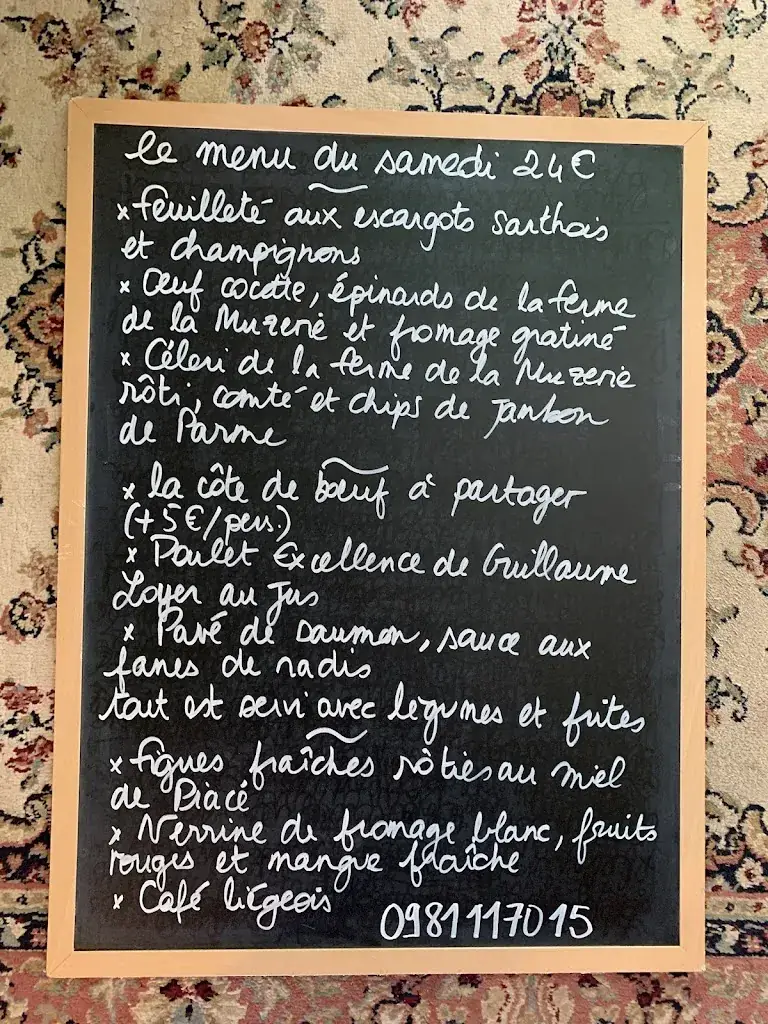 le menu du samedi 24€
x feuilleté aux escargots Sarthois
et champignons
x Œuf cocotte, épinards de la ferme
de la Muzerie et fromage gratiné
x Céleri de la ferme de la Muzerie
rôti, comté et chips de Jambon
de Parme
x la côte de bœuf à partager
(+5€/pers.)
x Poulet Excellence de Guillaume
Loyer au Jus
x Pavé de saumon, sauce aux
fanes de radis
tout est servi avec légumes et frites
x figues fraîches rôties au miel
de Piacé
x Verrine de fromage blanc, fruits
rouges et mangue fraîche
x Café liégeois
0981117015